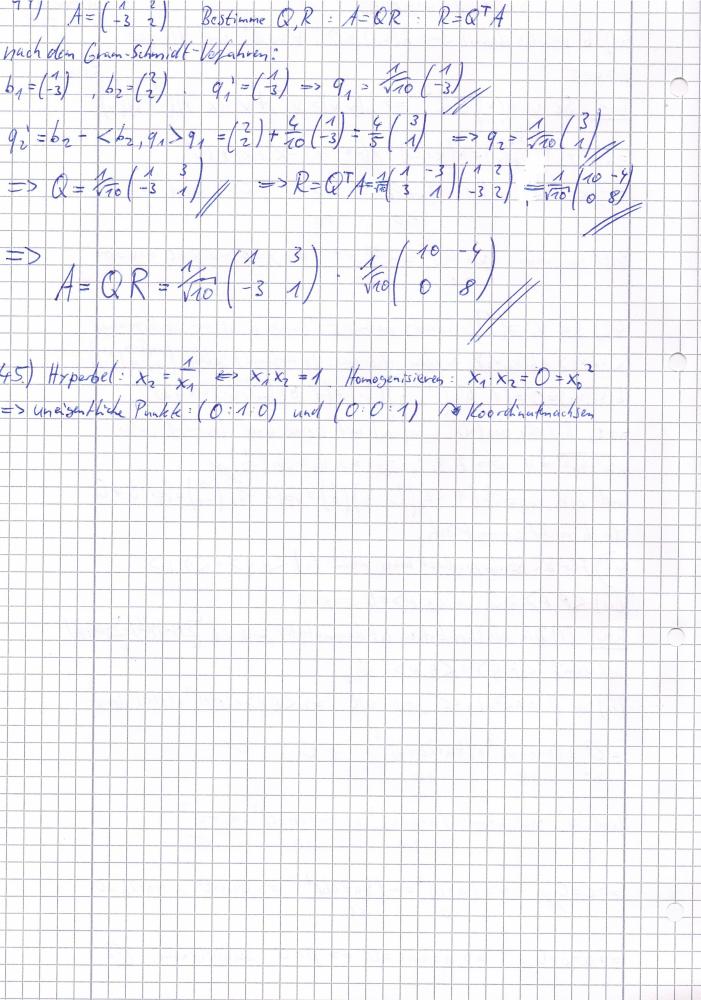 A = (1 2 -3 2) Bestimme Q,R : A=QR · R=QᵀA
nach dem Gram-Schmidt-Verfahren:
b₁=(1 -3), b₂=(2 2). q₁'=(1 -3) => q₁ = 1/√10 (1 -3)
q₂' = b₂ - <b₂,q₁>q₁ = (2 2) + 4/10 (1 -3) = 4/5 (3 1) => q₂ = 1/√10 (3 1)
=> Q = 1/√10 (1 3 -3 1) => R=QᵀA=1/√10 (1 -3 3 1)(1 2 -3 2) = 1/√10 (10 -4 0 8)
=> A = QR = 1/√10 (1 3 -3 1) · 1/√10 (10 -4 0 8)
45.) Hyperbel: x₂ = 1/x₁ <=> x₁·x₂ = 1. Homogenisieren: x₁·x₂ = 0 = x₀²
=> uneigentliche Punkte: (0:1:0) und (0:0:1) ↝ Koordinatenachsen